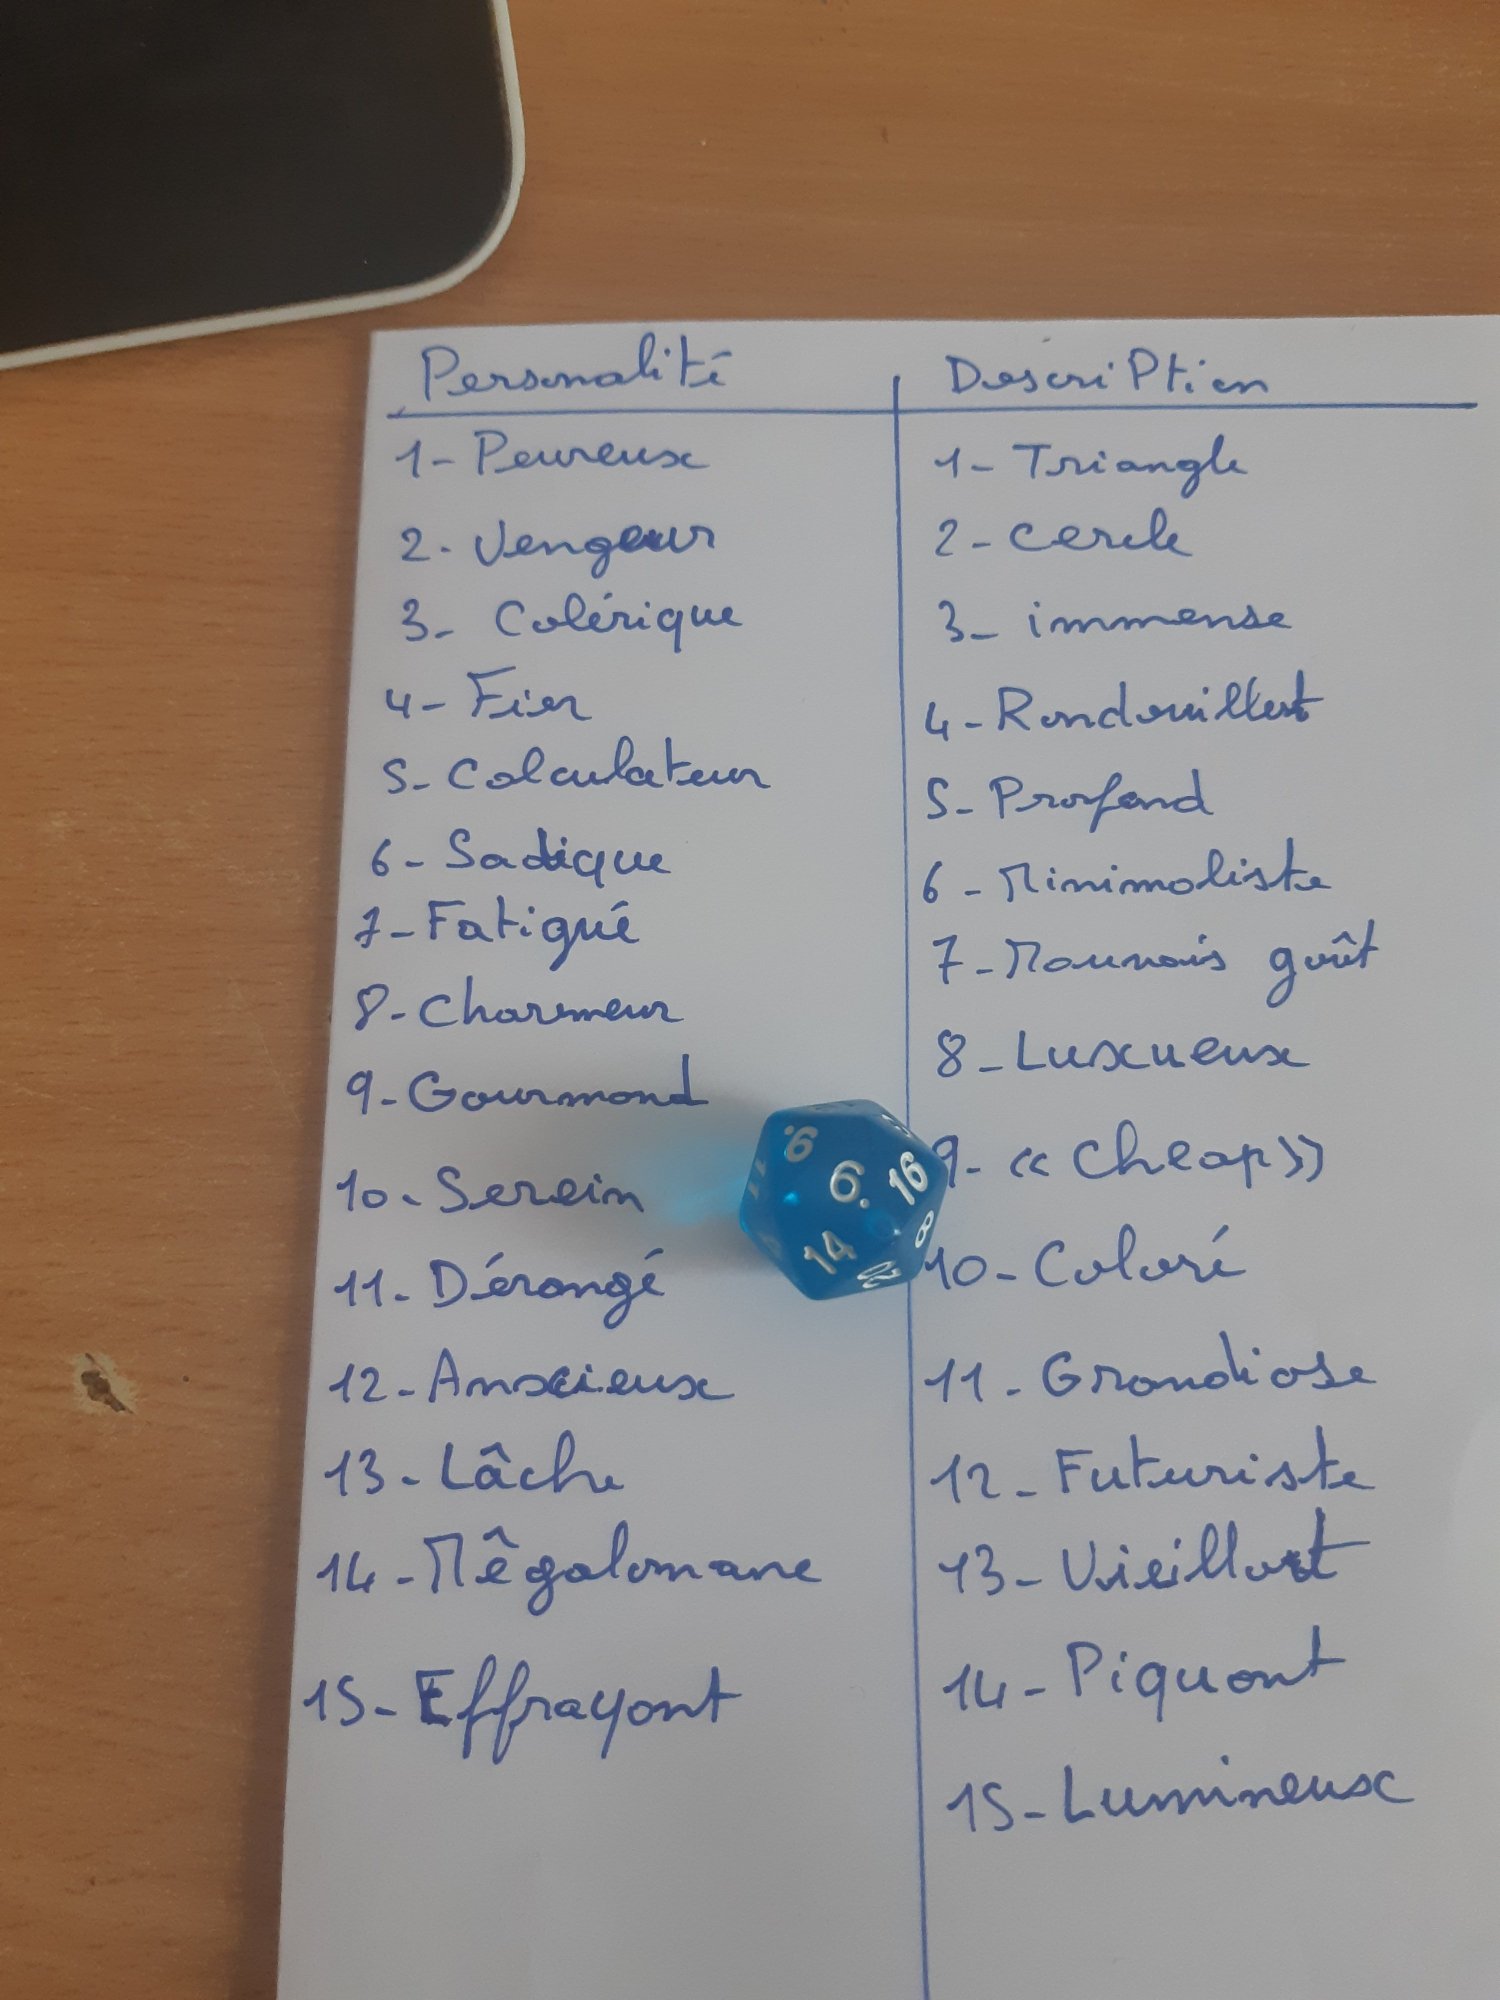 Personalité
1- Peureux
2- Vengeur
3- Colérique
4- Fier
5- Calculateur
6- Sadique
7- Fatigué
8- Charmeur
9- Gourmand
10- Serein
11- Dérangé
12- Anxcieux
13- Lâche
14- Mêgalomane
15- Effrayant
Description
1- Triangle
2- cercle
3- immense
4- Rondouillet
5- Profond
6- Minimaliste
7- Mauvais goût
8- Luxueux
9- « Cheap »
10- Coloré
11- Grandiose
12- Futuriste
13- Vieillot
14- Piquant
15- Lumineux
9.
6.
16
14
8
20
11